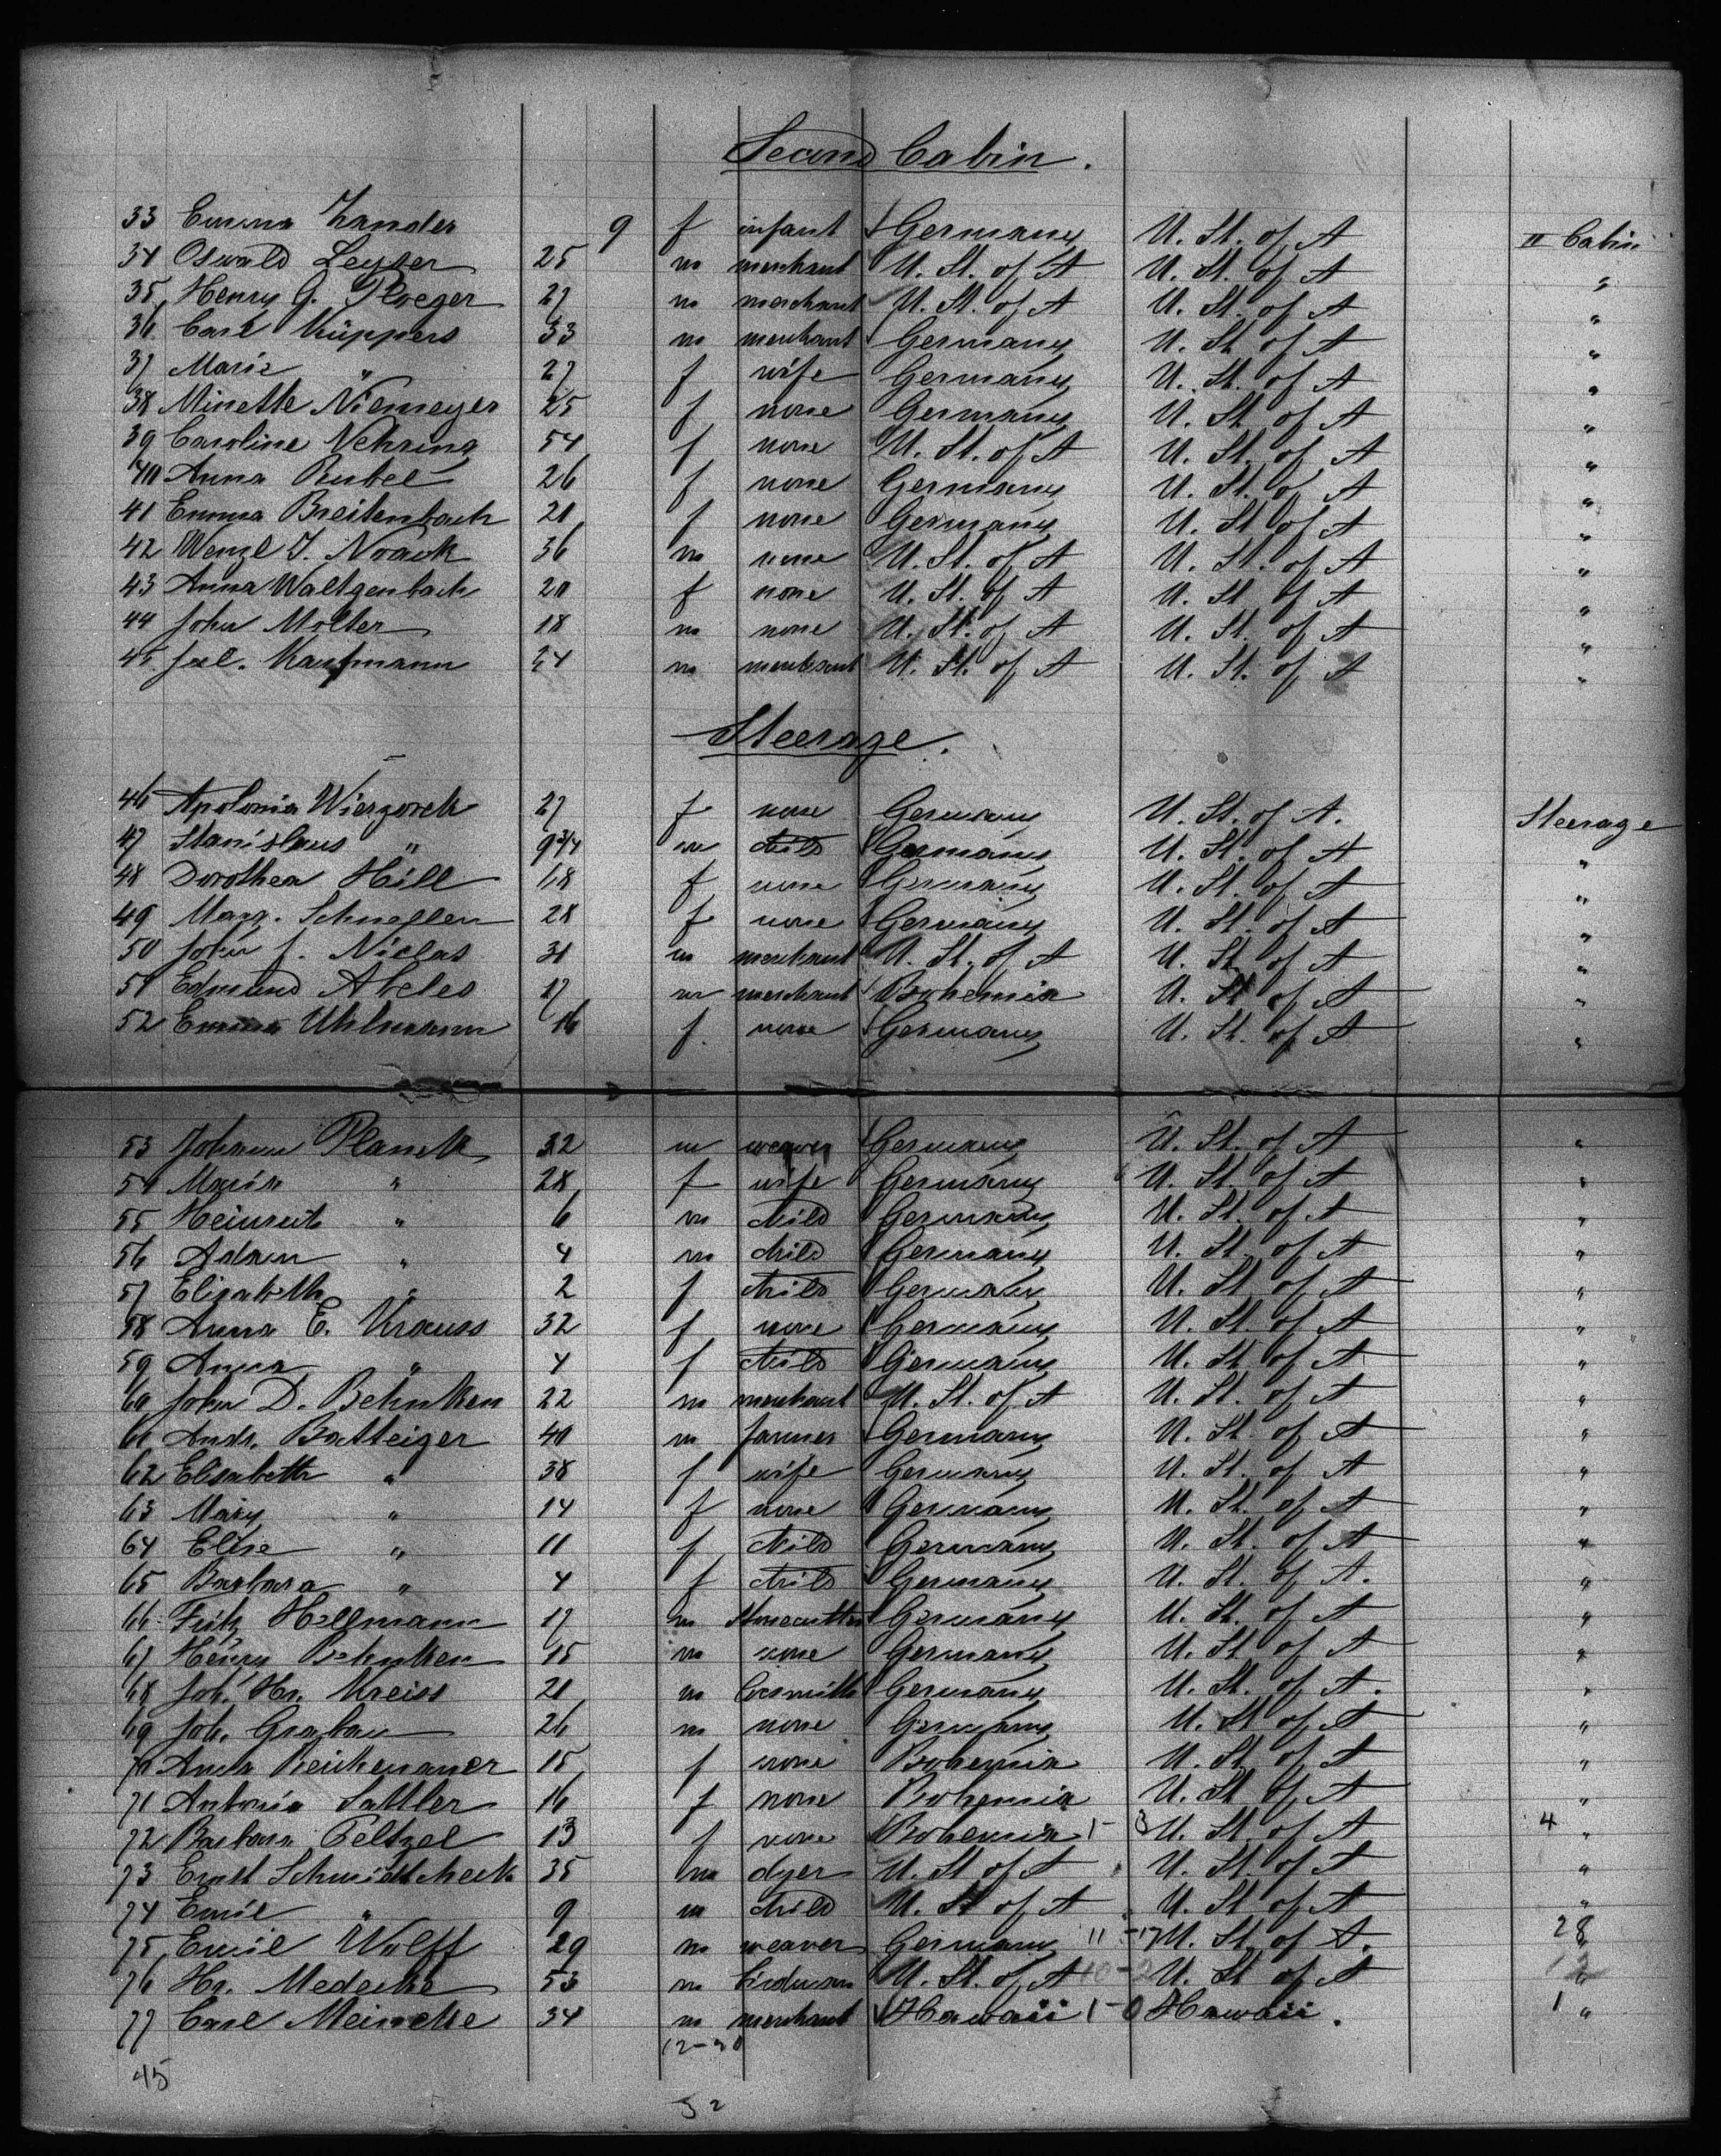 Second Cabin.
33 Emma Zander 9 f infant Germany U. St. of A II Cabin
34 Oswald Leyser 25 m merchant U. St. of A U. St. of A "
35 Henry G. Ploeger 27 m merchant U. St. of A U. St. of A "
36 Carl Küppers 33 m merchant Germany U. St. of A "
37 Marie " 27 f wife Germany U. St. of A "
38 Minette Niemeyer 25 f none Germany U. St. of A "
39 Caroline Nehring 54 f none U. St. of A U. St. of A "
40 Anna Beubel 26 f none Germany U. St. of A "
41 Emma Breitenbach 20 f none Germany U. St. of A "
42 Wenzl J. Noack 36 m none U. St. of A U. St. of A "
43 Anna Waltgenbach 20 f none U. St. of A U. St. of A "
44 John Molter 18 m none U. St. of A U. St. of A "
45 Jul. Kaufmann 24 m merchant U. St. of A U. St. of A "
Steerage.
46 Apolonia Wierzorek 27 f none Germany U. St. of A. Steerage
47 Stanislaus " 9 3/4 m child Germany U. St. of A "
48 Dorothea Hill 68 f none Germany U. St. of A "
49 Marg. Schnellen 28 f none Germany U. St. of A "
50 John J. Niclas 31 m merchant U. St. of A U. St. of A "
51 Edmund Abeles 17 m merchant Bohemia U. St. of A "
52 Emma Uhlmann 16 f. none Germany U. St. of A "
53 Johann Planck 32 m weaver Germany U. St. of A "
54 Maria " 28 f wife Germany U. St. of A "
55 Heinrich " 6 m child Germany U. St. of A "
56 Adam " 4 m child Germany U. St. of A "
57 Elisabeth " 2 f child Germany U. St. of A "
58 Anna E. Krauss 32 f none Germany U. St. of A "
59 Anna " 4 f child Germany U. St. of A "
60 John D. Behnken 22 m merchant U. St. of A U. St. of A "
61 Andr. Batteiger 40 m farmer Germany U. St. of A "
62 Elisabeth " 38 f wife Germany U. St. of A "
63 Mary " 14 f none Germany U. St. of A "
64 Elise " 11 f child Germany U. St. of A "
65 Barbara " 4 f child Germany U. St. of A. "
66 Fritz Hellmann 17 m stonecutter Germany U. St. of A "
67 Henry Behnken 15 m none Germany U. St. of A "
68 Joh. Hr. Kreiss 20 m locsmith Germany U. St. of A. "
69 Joh. Grabau 26 m none Germany U. St. of A "
70 Anna Reichenauer 15 f none Bohemia U. St. of A "
71 Antonia Sattler 16 f none Bohemia U. St. of A "
72 Barbara Peltzel 13 f none Bohemia 1-3 U. St. of A 4 "
73 Ernst 35 m dyer U. St. of A U. St. of A "
74 Emil " 9 m child U. St. of A U. St. of A "
75 Emil Wolff 29 m weaver Germany 11-17 U. St. of A. 28 "
76 Hr. Medecke 53 m U. St. of A 10-2 U. St. of A 12 "
77 Carl Meinecke 34 m merchant Hawaii 1-0 Hawaii. 1 "
45 12-20
32